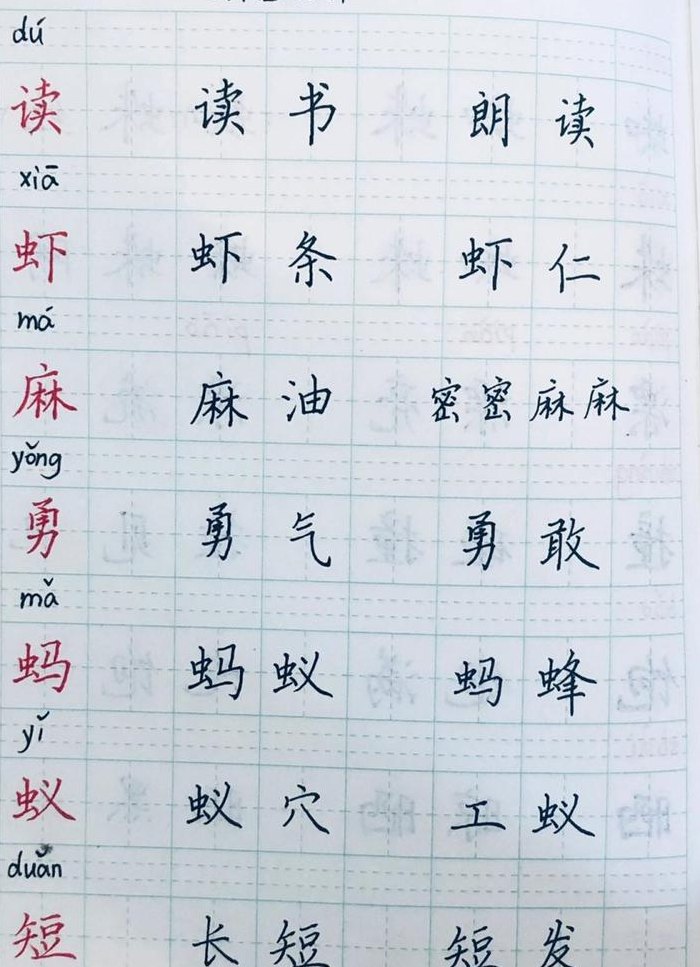 dú
读 读书 朗读
xiā
虾 虾条 虾仁
má
麻 麻油 密密麻麻
yǒng
勇 勇气 勇敢
mǎ
蚂 蚂蚁 蚂蜂
yǐ
蚁 蚁穴 工蚁
duǎn
短 长短 短发